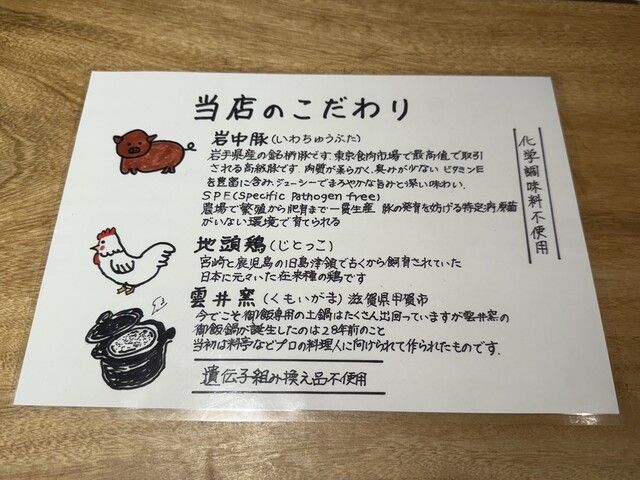 当店のこだわり
化学調味料不使用
岩中豚(いわちゅうぶた)
岩手県産の銘柄豚です。東京食肉市場で最高値で取引
される高級豚です。肉質が柔らかく、臭みが少ない ビタミンE
を豊富に含み、ジューシーでまろやかな旨みと深い味わい。
SPF(Specific Pathogen free)
農場で繁殖から肥育まで一貫生産 豚の発育を妨げる特定病原菌
がいない環境で育てられる
地頭鶏(じとっこ)
宮崎と鹿児島の旧島津領で古くから飼育されていた
日本に元々いた在来種の鶏です
雲井窯(くもいがま)滋賀県甲賀市
今でこそ御飯専用の土鍋はたくさん出回っていますが雲井窯の
御飯鍋が誕生したのは28年前のこと
当初は料亭などプロの料理人に向けられて作られたものです。
遺伝子組み換え品不使用